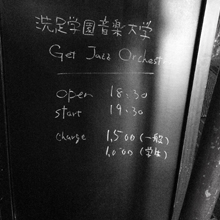 洗足学園音楽大学
Get Jazz Orchest
open 18:30
start 19:30
charge 1,500(一般)
1,000(学生)